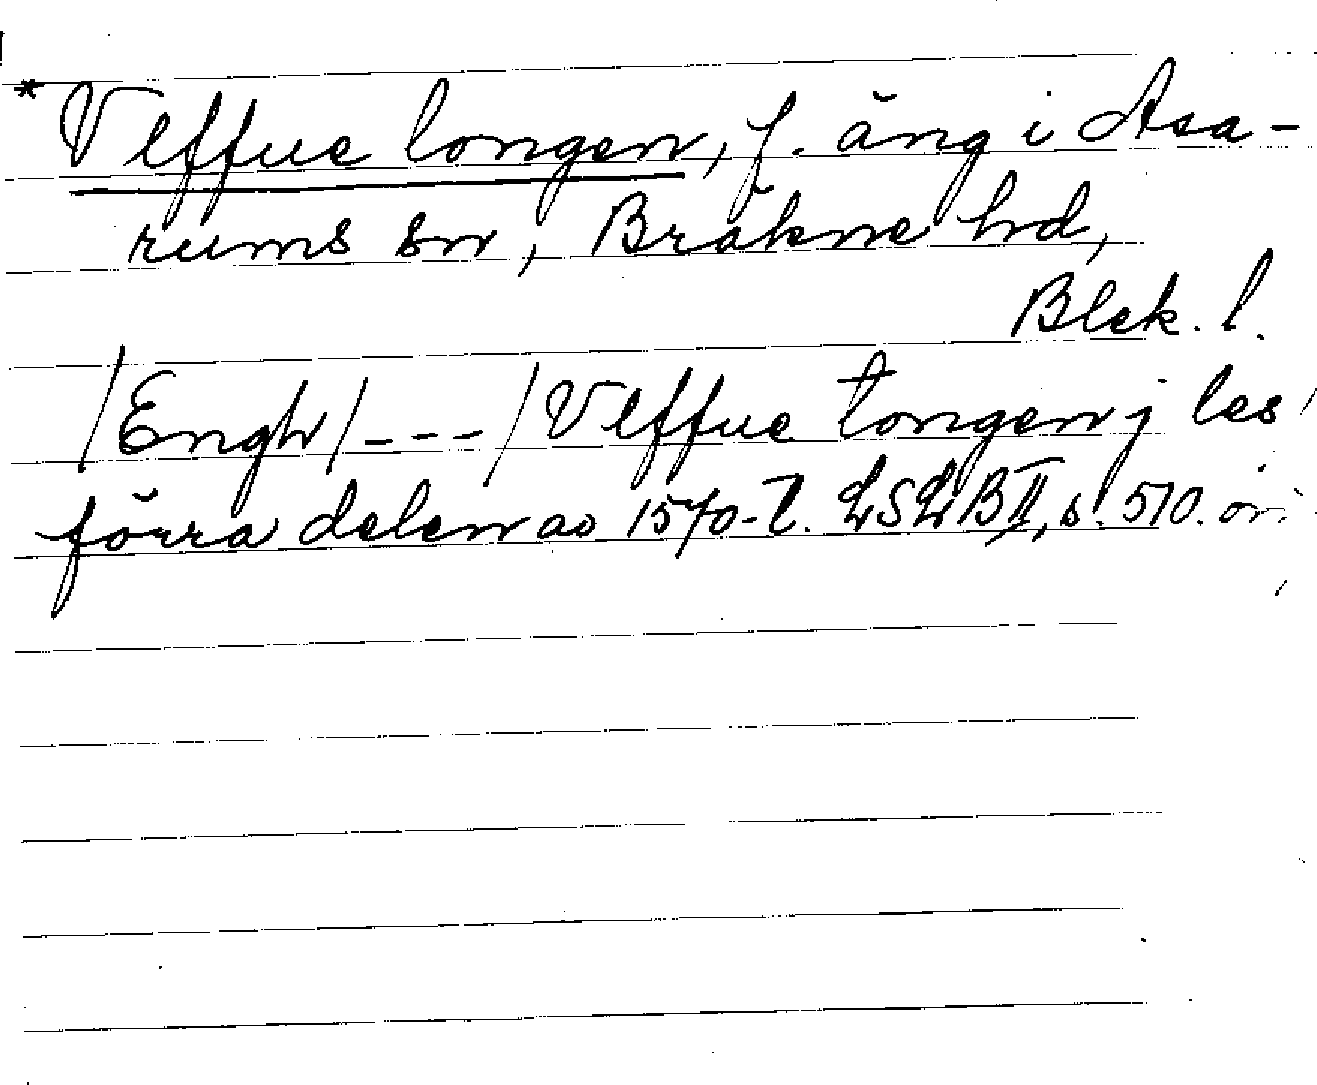 * Vlffue longen, f. äng i Asa-
rums sn, Bräkne hd,
Blek. l.
/Engh/ - - - / Vlffue tongenn j les
förra delen av 1570-t. LSLB II, s. 510. öv.